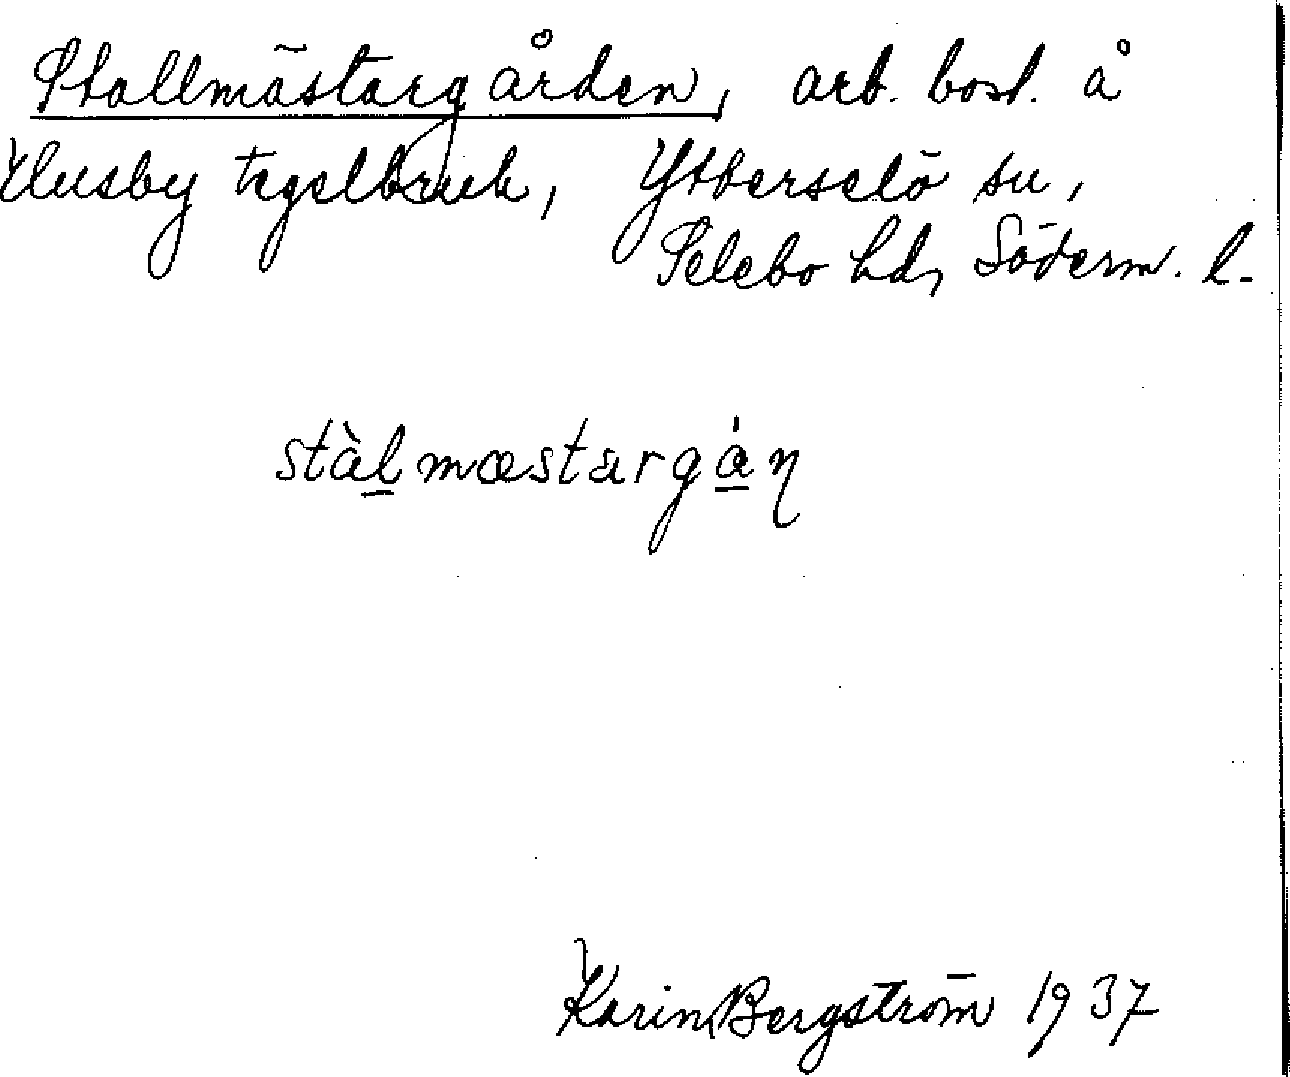 Stallmästargården, arb. bost. å
Husby tegelbruk, Ytterselö sn,
Selebo hd, Söderm. l.
stàlmæstargȧ́n
Karin Bergström 1937